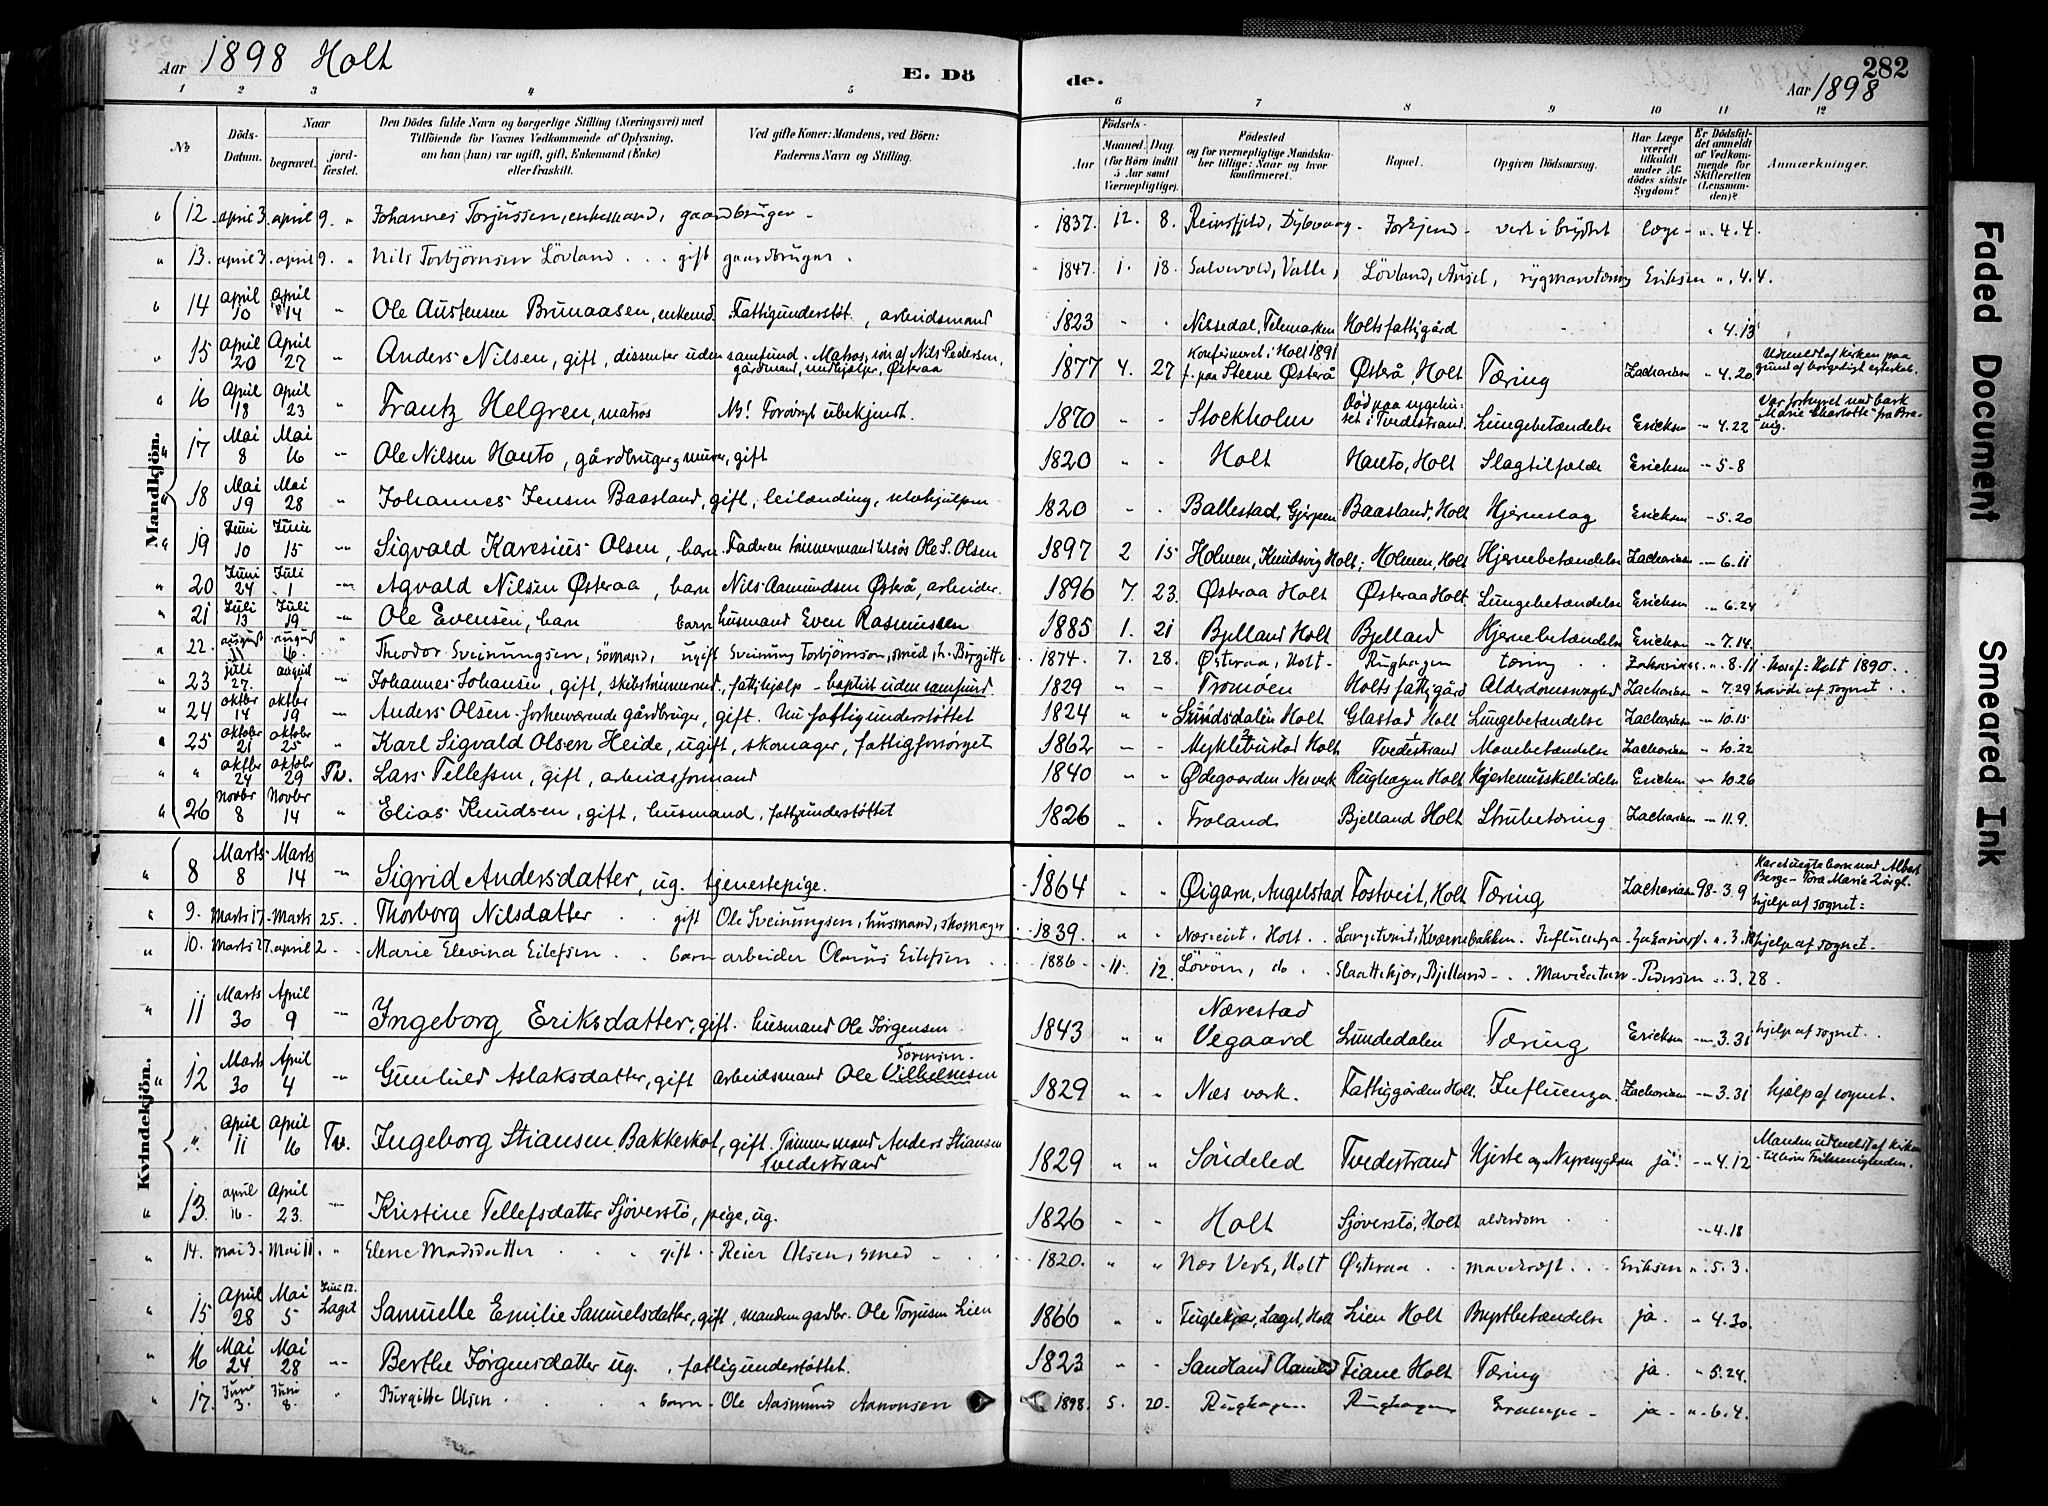 Aar 1898 Holt E. Dö de. 282
Aar 1898
1 2 3 4 5 6 7 8 9 10 11 12
№ Döds-Datum. Naar begravet. jordfæstet. Den Dödes fulde Navn og borgerlige Stilling (Næringsvei) med Tilföiende for Voxnes Vedkommende af Oplysning, om han (hun) var ugift, gift, Enkemand (Enke) eller fraskilt. Ved gifte Koner: Mandens, ved Börn: Faderens Navn og Stilling. Födsels- Aar Maaned. Dag. (for Börn indtil 5 Aar samt Værnepligtige). Födested og for værnepligtige Mandskaber tillige: Naar og hvor konfirmeret. Bopæl. Opgiven Dödsaarsag. Har Læge været tilkaldt under Afdödes sidste Sygdom? Er Dödsfaldet anmeldt af Vedkommende for Skifteretten (Lensmanden)? Anmærkninger.
Mandkjön.
" 12. april 3. april 9. " Johannes Torjussen, enkemand, gaardbruger - 1837. 12. 8. Reinsfjeld, Dybvaag - vert i brystet læge - " 4.4.
" 13. april 3. april 9. " Nils Torbjörnsen Lövland . . . gift gaardbruger . 1847. 1. 18. Valle, Lövland, rygmarvtæring Eriksen " . 4.4.
" 14 April 10 April 14 " Ole Austensen Brunaasen, enkemd. Fattigunderstöt. , arbeidsmand 1823 " " Nissedal, Telemarken Holts fattigård " 4.13
" 15 April 20 April 27 " Anders Nilsen, gift, dissenter uden samfund. Matros, sön af Nils Pedersen, gårdmand, Østeraa 1877 4. 27 Konfirmeret i Holt 1891 f. paa Steene Østerå Østerå, Holt Tæring Zachariasen " 4.20. Udmeldt af kirken paa grund af borgerligt egteskab.
" 16 April 18 April 23 " Frantz Helgren, matros NB! Forövrigt ubekjendt. 1870 " " Stockholm Död paa sygehuset i Tvedestrand. Lungebetændelse Ericksen " 4.22 Var forhyret med bark "Marie Charlotte" fra
" 17 Mai 8 Mai 16 " Ole Nilsen Hauto, gårdbruger, gift 1820 " " Holt Hauto, Holt Slagtilfælde Ericksen " 5.8
" 18 Mai 19 Mai 28 " Johannes Jensen Baasland, gift, leilænding, 1820 " " Ballestad, Gjerpen Baasland, Holt Hjerneslag Ericksen " 5.20
" 19 Juni 10 Juni 15 " Sigvald Karesius Olsen, barn. Faderen tömmermand Ole S. Olsen 1897 2 15 Holmen, Knudsvig Holt, Holmen, Holt Hjernebetændelse Zachariasen " 6.11
" 20 Juni 24 Juli 1 " Agvald Nilsen Østeraa, barn Nils Aamundsen Østerå, arbeider. 1896 7. 23. Østeraa Holt Østeraa Holt. Lungebetændelse Ericksen " 6.24
" 21 Juli 13 Juli 19 " Ole Evensen, barn barn husmand Even Rasmussen 1885 1. 21 Bjelland Holt Bjelland Hjernebetændelse Ericksen " 7.14.
" 22. august 11 august 16. " Theodor Sveinungsen, sömand, ugift Sveinung Torbjörnson, smed, h. Birgitte 1874. 7. 28. Østeraa, Holt - Rughagen tæring . " 8.11 Konf. Holt 1890 . .
" 23 juli 27. august 1 " Johannes Johansen, gift, skibstömmermd, fattighjælp - baptist uden samfund. 1829 " " Tromøen Holts fattigård Alderdomssvaghed Zachariasen " 7.29 havde af sognet . .
" 24 oktbr 14 oktbr 19 " Anders Olsen forhenværende gårdbruger, gift. Nu fattigunderstöttet 1824 " " Lundsdalen Holt Glastad Holt Lungebetændelse Zachariasen " 10.15
" 25 oktober 21 oktober 25 " Karl Sigvald Olsen Heide, ugift, skomager, fattigforsörget 1862 " " Myklebustad Holt Tvedestrand Mavebetændelse Zachariasen " 10.22
" " oktbr 24 oktober 29 Tv. Lars Tellefsen, gift, arbeidsformand 1840 " " Ødegaarden Nesverk Rughagen Holt Ericksen " 10.26
" 26 Novbr 8 Novbr 14 " Elias Knudsen, gift, husmand, fattigunderstöttet 1826 " " Froland Bjelland Holt Strubetæring Zachariasen " 11.9.
Kvindekjön.
" 8 Marts 8 Marts 14 " Sigrid Andersdatter, ug. tjenestepige. 1864 " " Øigarn, Angelstad Tostveit, Holt Tæring Zachariasen 98-3.9 Har et uegte barn med Albert Berge - Tora Marie 2 årgl. hjelp af sognet.
" 9. Marts 17. Marts 25. Thorborg Nilsdatter . . gift Ole Sveinungsen, husmand, skomager 1839. " " Næsveit, Holt . Langetveit, Kværnebakken . Influentza - " 3.18 hjelp af sognet.
" 10. marts 27. april 2. - Marie Elevina Eilefsen . . barn arbeider Olaus Eilefsen . . 1886 11. 12. Lövöen, do . Slaattekjær, Bjelland - Pedersen " . 3.28.
" 11 Marts 30 April 9 " Ingeborg Eriksdatter, gift. husmand Ole Jörgensen 1843 " " Nærestad Vegaard Lundedalen Tæring Ericksen " 3.31 hjelp af sognet.
" 12 Marts 30 April 4 " Gunhild Aslaksdatter, gift arbeidsmand Ole Vilhelmsen Sörensen. 1829 " " Næs værk. Fattiggården Holt. Influenza. Zachariasen " 3.31 hjelp af sognet.
" " April 11 April 16 Tv. Ingeborg Stiansen Bakkerkot, gift. Tömmermand Anders Stiansen Tvedestrand 1829 " " Söndeled Tvedestrand Hjerte og Nyresygdom ja. " 4.12 Manden udmeldt af kirken - tilhörer Frimenigheden.
" 13. april 16. April 23. " Kristine Tellefsdatter Sjöverstö, pige, ug. 1826 " " Holt Sjöverstö, Holt alderdom " 4.18
" 14. mai 3. Mai 11. " Elene Madsdatter . . gift . Reier Olsen, smed 1820. " " Næs Verk, Holt Østeraa . . mavekræft . . . Eriksen " . 5.3.
" 15 April 28 Mai 5 Juni 12. Laget Samuelle Emilie Samuelsdatter, gift, manden gardbr. Ole Torjusen Lien 1866 " " Fuglekjær, Laget, Holt Lien Holt Brystbetændelse ja. " 4.30.
" 16 Mai 24 Mai 28 " Berthe Jörgensdatter ug. , fattigunderstöttet. 1823 " " Sandland Aamlid Fiane Holt Tæring ja. " 5.24.
" 17. Juni 3. Juni 8. " Birgitte Olsen . . . " barn - Ole Aasmund Aanonsen 1898. 5. 20. Rughagen Rughagen Krampe - ja - " 6.4.
Faded Document
Smeared Ink